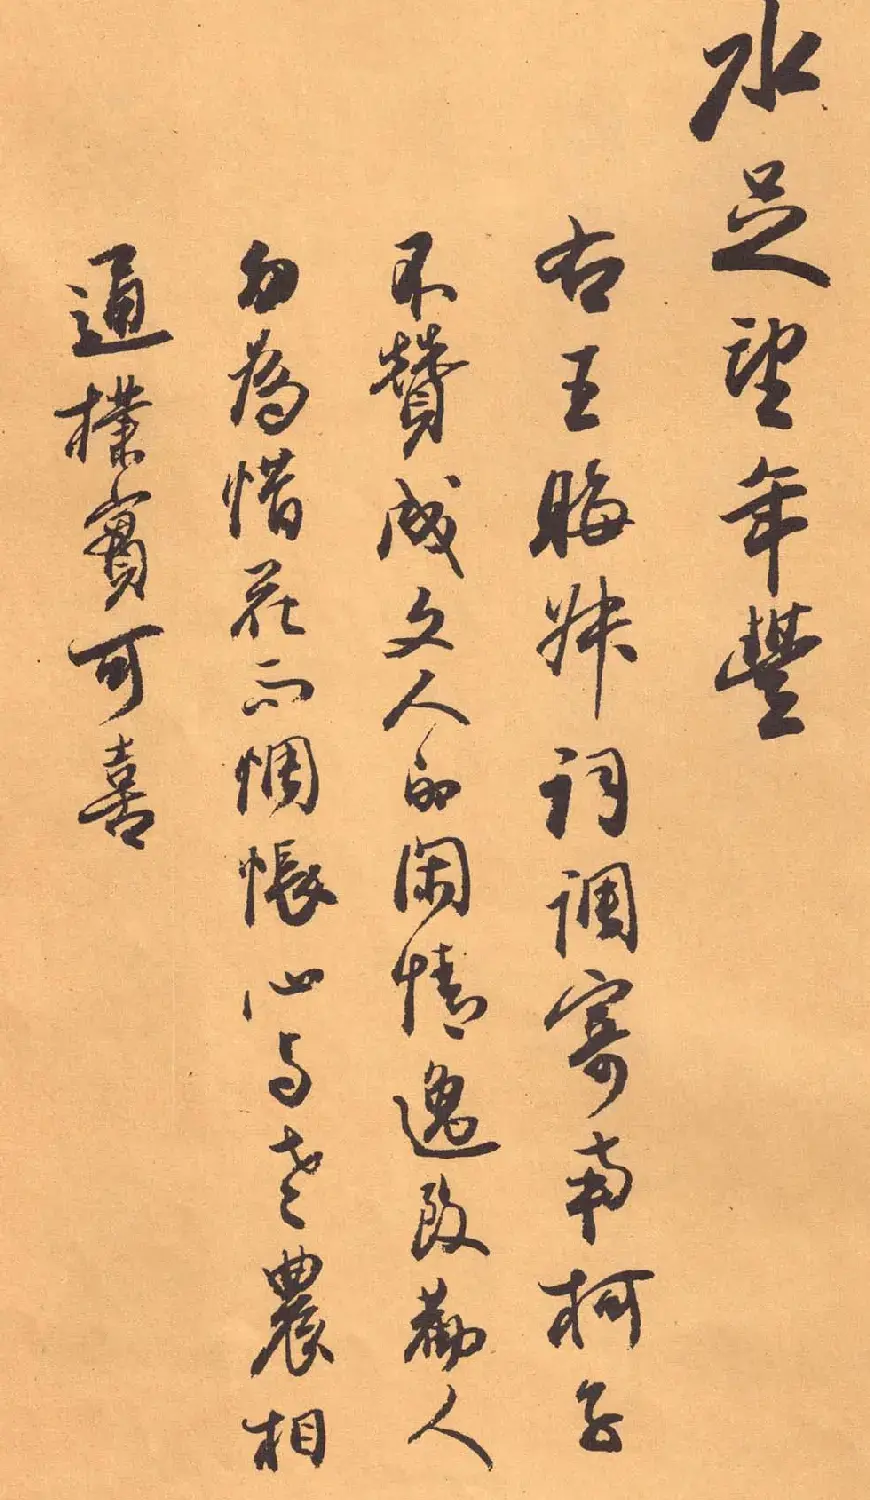 水足望年豐
右王晦叔詞調寄南柯子
不贊成文人的閑情逸致勸人
勿為惜花而惆悵心与老農相
通樸實可喜